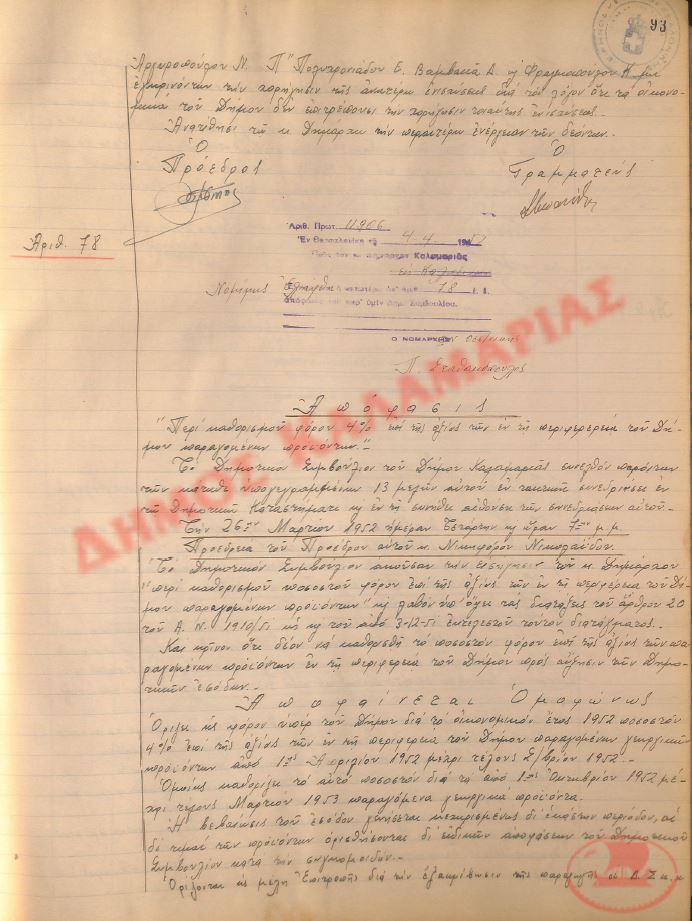 93
Ἀργυροπούλου Ν. Π. Πολυχρονιάδου Ε. Βαμβακᾶ Δ. κ Φραγκοπούλου Κ. μὴ
ἐγκρινόντων τὴν χορήγησιν τῆς ἀνωτέρω ἐνισχύσεως διὰ τὸν λόγον ὅτι τὰ οἰκονο-
μικὰ τοῦ Δήμου δὲν ἐπιτρέπουσι τὴν χορήγησιν τοιαύτης ἐνισχύσεως.
Ἀνατίθησι τῷ κ. Δημάρχῳ τὴν περαιτέρω ἐνέργειαν τῶν δεόντων.
Ὁ Ὁ
Πρόεδρος Γραμματεύς
Ἀριθ. 78
Ἀριθ. Πρωτ. 11966
Ἐν Θεσσαλονίκῃ τῇ 4-4 1952
Πρὸς τὸν κ. Δήμαρχον Καλαμαριᾶς
εἰς Καλαμαριὰν
Νομίμως ἐλήφθη ἡ κατωτέρω ὑπ' ἀριθ. 78 ἐ. ἔ.
ἀπόφασις τοῦ παρ' ὑμῖν Δημ. Συμβουλίου.
Ο ΝΟΜΑΡΧΗΣ Θεσ/νίκης
Π. Σταθακόπουλος
ΔΗΜΟΣ ΚΑΛΑΜΑΡΙΑΣ
Ἀπόφασις
"Περὶ καθορισμοῦ φόρου 4% ἐπὶ τῆς ἀξίας τῶν ἐν τῇ περιφερείᾳ τοῦ Δή-
μου παραγομένων προϊόντων."
Τὸ Δημοτικὸν Συμβούλιον τοῦ Δήμου Καλαμαριᾶς συνελθὸν παρόντων
τῶν κάτωθι ὑπογεγραμμένων 13 μελῶν αὐτοῦ ἐν τακτικῇ συνεδριάσει ἐν
τῷ Δημοτικῷ Καταστήματι κ ἐν τῇ συνήθει αἰθούσῃ τῶν συνεδριάσεων αὐτοῦ.
Τὴν 26ην Μαρτίου 1952 ἡμέραν Τετάρτην κ ὥραν 7ην μ.μ.
Προεδρείᾳ τοῦ Προέδρου αὐτοῦ κ. Νικηφόρου Νικολαΐδου.
Τὸ Δημοτικὸν Συμβούλιον ἀκοῦσαν τὴν εἰσήγησιν τοῦ κ. Δημάρχου
"περὶ καθορισμοῦ ποσοστοῦ φόρου ἐπὶ τῆς ἀξίας τῶν ἐν τῇ περιφερείᾳ τοῦ Δή-
μου παραγομένων προϊόντων" κ λαβὸν ὑπ' ὄψει τὰς διατάξεις τοῦ ἄρθρου 20
τοῦ Α. Ν. 1910/51 ὡς κ τοῦ ἀπὸ 3-12-51 ἐκτελεστοῦ τούτου διατάγματος.
Καὶ κρῖνον ὅτι δέον νὰ καθορισθῇ τὸ ποσοστὸν φόρου ἐπὶ τῆς ἀξίας τῶν πα-
ραγομένων προϊόντων ἐν τῇ περιφερείᾳ τοῦ Δήμου πρὸς αὔξησιν τῶν Δημο-
τικῶν ἐσόδων.
Ἀποφαίνεται Ὁμοφώνως
Ὁρίζει ὡς φόρον ὑπὲρ τοῦ Δήμου διὰ τὸ οἰκονομικὸν ἔτος 1952 ποσοστὸν
4% ἐπὶ τῆς ἀξίας τῶν ἐν τῇ περιφερείᾳ τοῦ Δήμου παραγομένων γεωργικῶν
προϊόντων ἀπὸ 1ης Ἀπριλίου 1952 μέχρι τέλους Σ/βρίου 1952.
Ὁμοίως καθορίζει τὸ αὐτὸ ποσοστὸν διὰ τὰ ἀπὸ 1ης Ὀκτωβρίου 1952 μέ-
χρι τέλους Μαρτίου 1953 παραγόμενα γεωργικὰ προϊόντα.
Ἡ βεβαίωσις τοῦ ἐσόδου γενήσεται κεχωρισμένως δι' ἑκάστην περίοδον, αἱ
δὲ τιμαὶ τῶν προϊόντων ὁρισθήσονται δι' εἰδικῶν ἀποφάσεων τοῦ Δημοτικοῦ
Συμβουλίου κατὰ τὴν συγκομιδήν.
Ὁρίζονται ὡς μέλη Ἐπιτροπῆς διὰ τὴν ἐξακρίβωσιν τῆς παραγωγῆς οἱ Δ. Σ. κ. κ